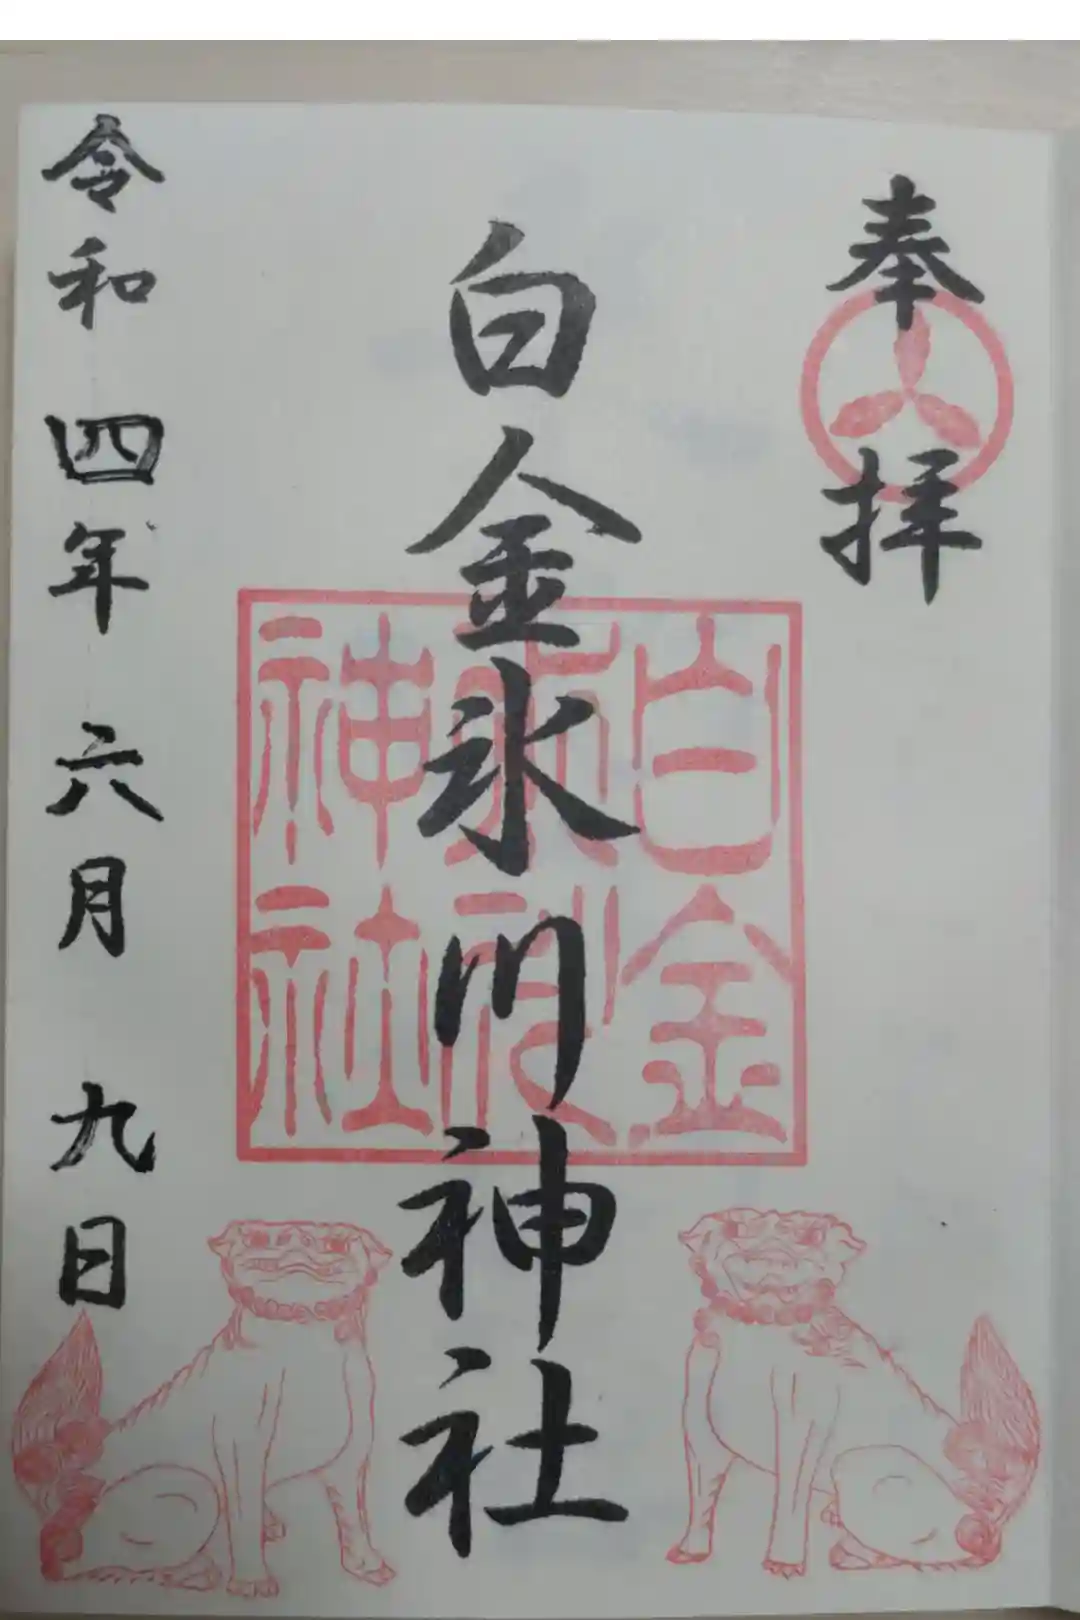 奉拝
白金氷川神社
白金
氷川
神社
令和四年六月九日